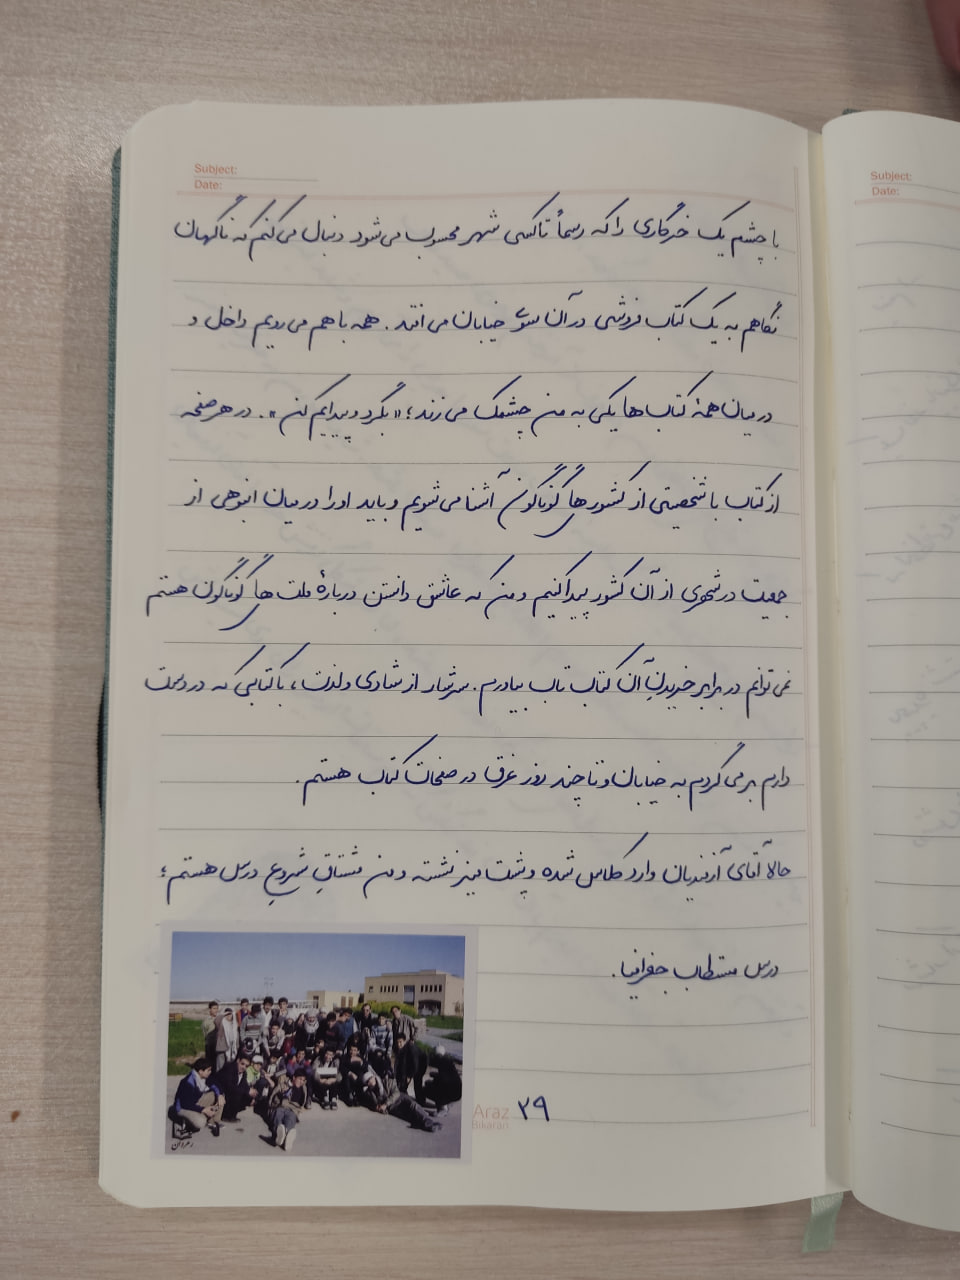 Subject:
Date:
با چشم یک خرگاری را که رسماً تاکسی شهر محسوب می‌شود دنبال می‌کنم که ناگهان
نگاهم به یک کتاب فروشی در آن سوی خیابان می افتد. همه با هم می رویم داخل و
در میان همهٔ کتاب ها یکی به من چشمک می زند؛ «بگرد و پیدایم کن». در هر صفحه
از کتاب با شخصیتی از کشورهای گوناگون آشنا می شویم و باید او را در میان انبوهی از
جمعیت در شهری از آن کشور پیدا کنیم و من که عاشق دانستن دربارهٔ ملت های گوناگون هستم
نمی توانم در برابر خریدنِ آن کتاب تاب بیاورم. سرشار از شادی و لذت، با کتابی که در دست
دارم برمی گردم به خیابان و تا چند روز غرق در صفحات کتاب هستم.
حالا آقای آزندیان وارد کلاس شده و پشت میز نشسته و من مشتاقِ شروعِ درس هستم؛
درس مستطاب جغرافیا.
Araz
Bikaran
۲۹
Subject:
Date: